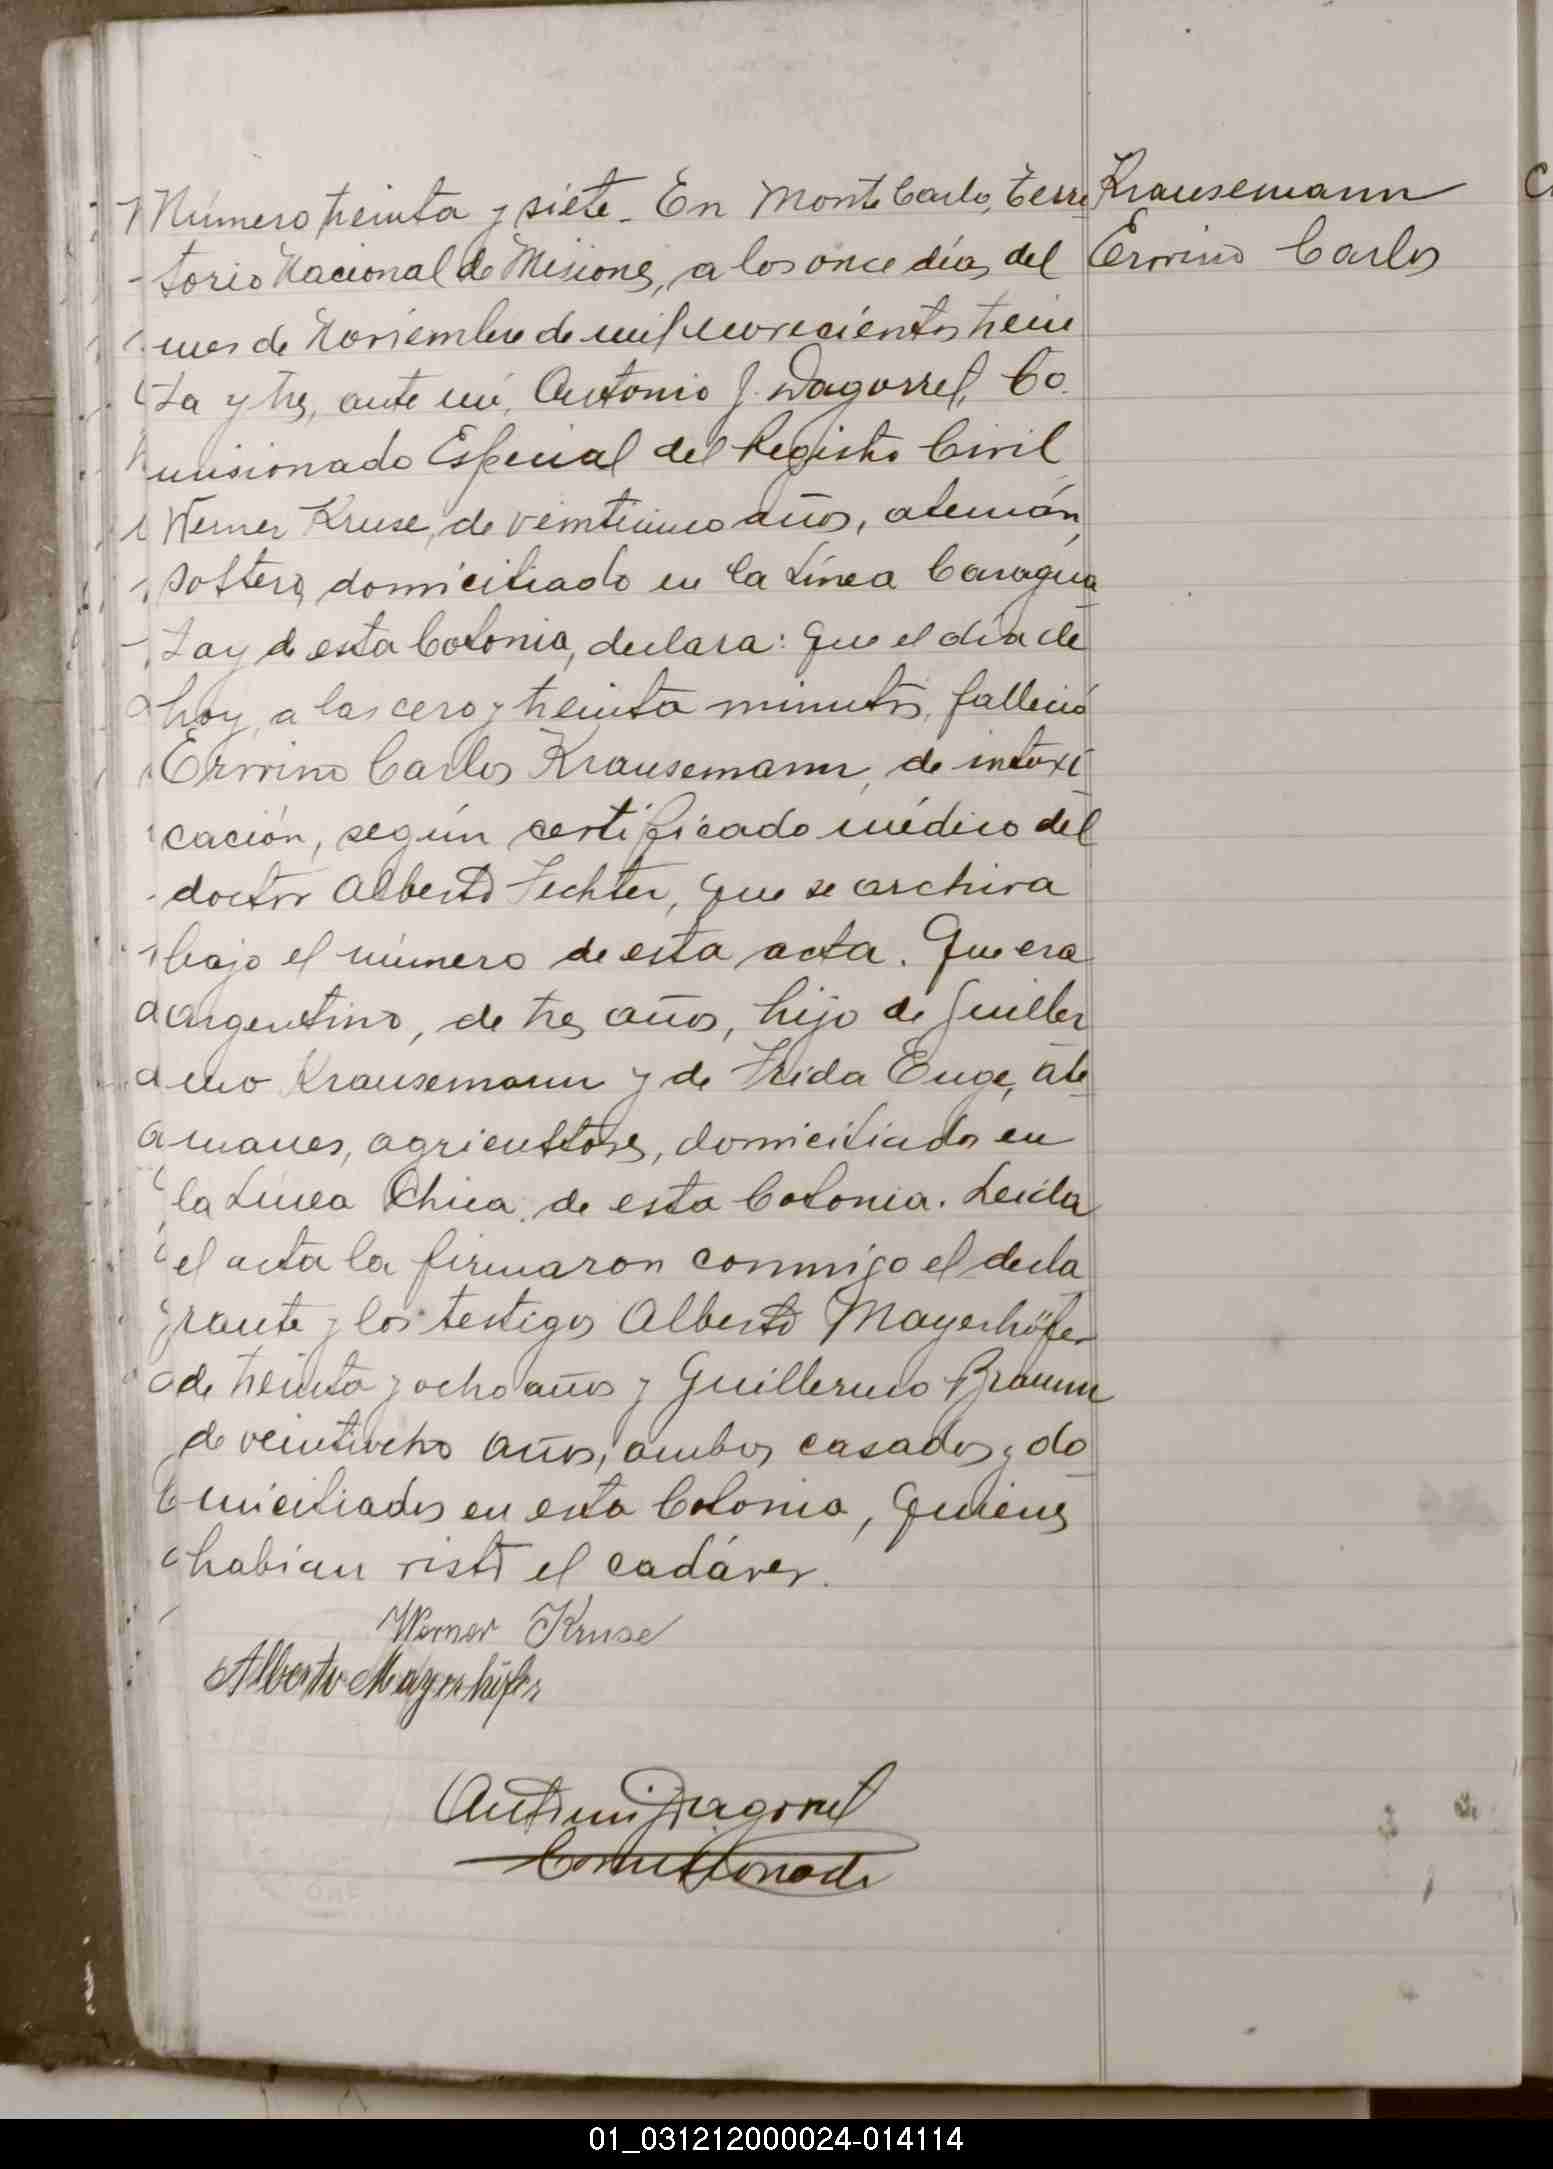 Número treinta y siete. En Monte Carlo, Terri
torio Nacional de Misiones, a los once días del
mes de Noviembre de mil novecientos trein
ta y tres, ante mí, Antonio J. Dagorret, Co.
misionado Especial del Registro Civil
Werner Kruse, de veinticinco años, alemán,
soltero, domiciliado en la Línea Caragua
tay de esta Colonia, declara: Que el día de
hoy, a las cero y treinta minutos, falleció
Erwino Carlos Krausemann, de intoxi
cación, según certificado médico del
doctor Alberto Fechter, que se archiva
bajo el número de esta acta. Que era
argentino, de tres años, hijo de Guiller
mo Krausemann y de Frida Enge, ale
manes, agricultores, domiciliados en
la Línea Chica, de esta Colonia. Leída
el acta la firmaron conmigo el decla
rante y los testigos Alberto Mayerhöfer
de treinta y ocho años y Guillermo Braunn
de veintiocho años, ambos casados y do
miciliados en esta Colonia, quienes
habían visto el cadáver.
Werner Kruse
Alberto Mayerhöfer
Antonio J Dagorret
Comisionado
Krausemann
Erwino Carlos
01_031212000024-014114